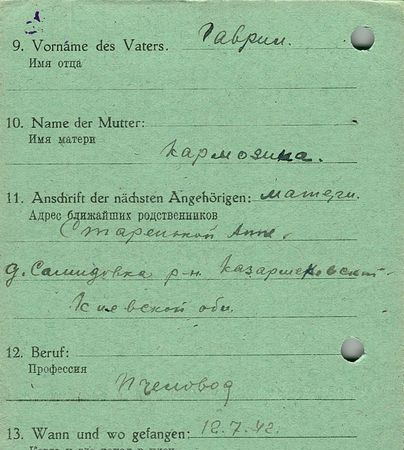 9. Vorname des Vaters. Гаврил.
Имя отца
10. Name der Mutter:
Имя матери
Кармозина.
11. Anschrift der nächsten Angehörigen: матери.
Адрес ближайших родственников
Старенькой Анне.
д.
р-н.
Киевской обл.
12. Beruf:
Профессия
Пчеловод
13. Wann und wo gefangen: 12.7.42.